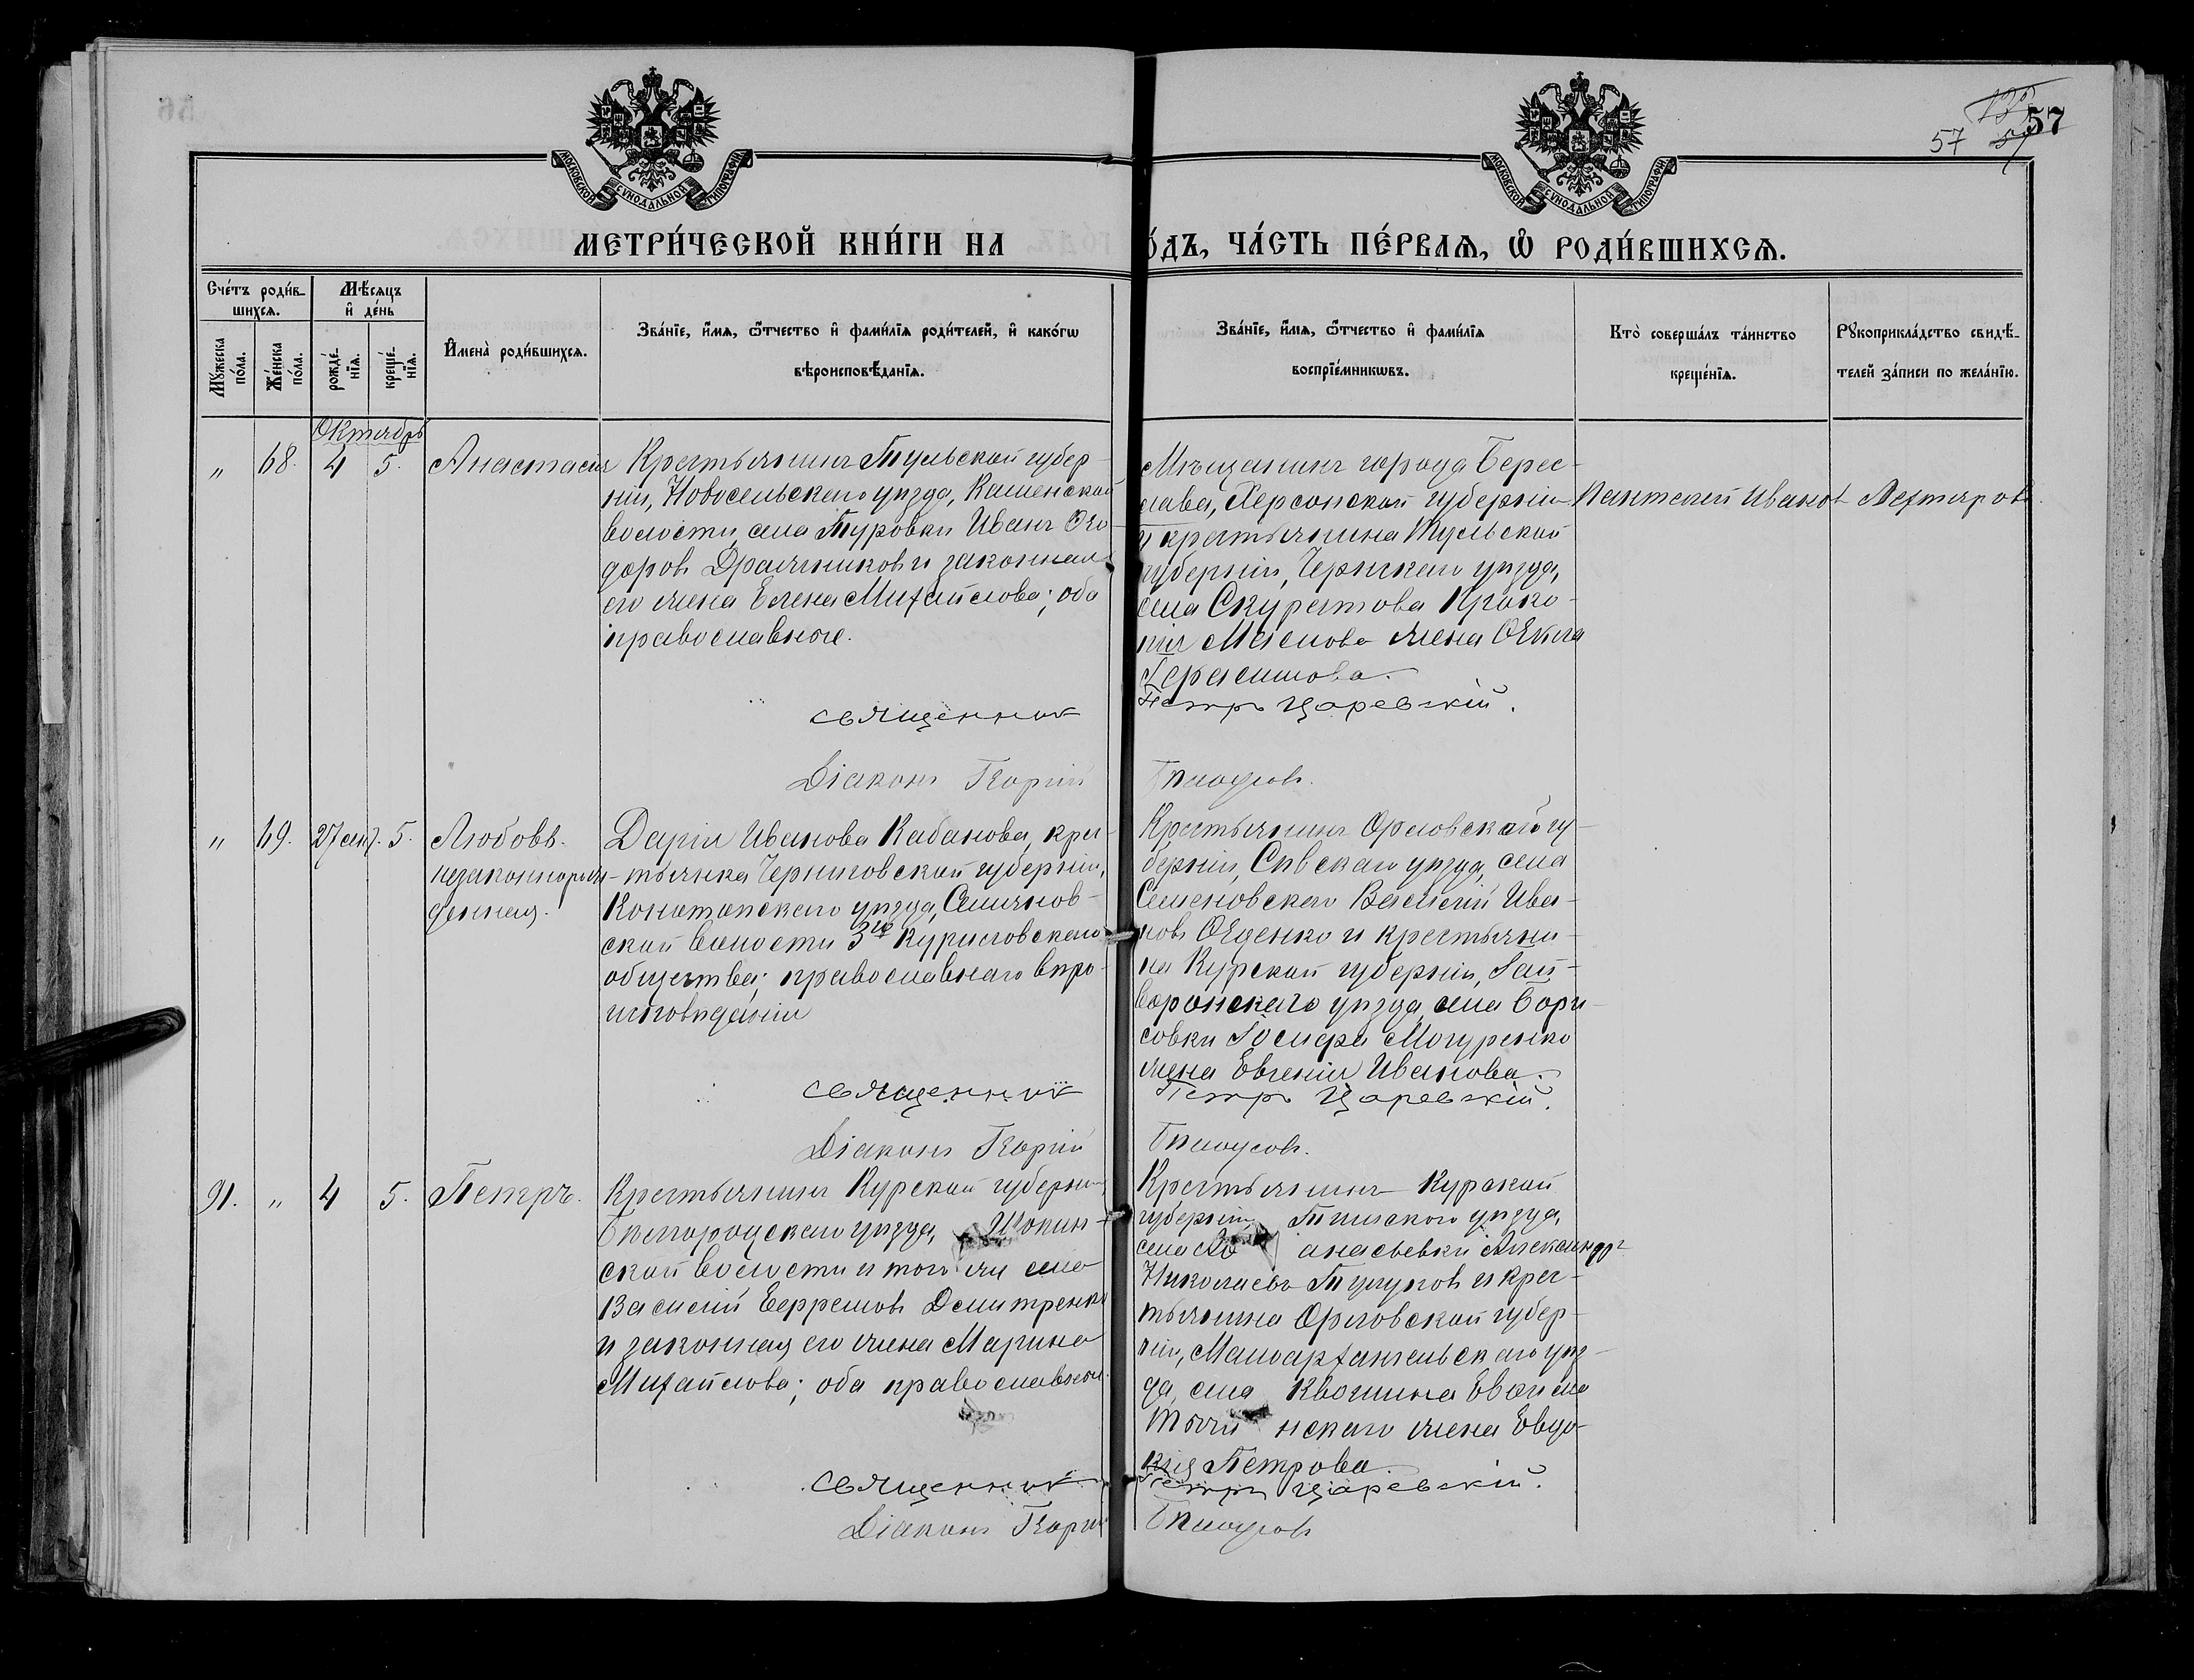 57 57
МОСКОВСКОЙ СѴНОДАЛЬНОЙ ТИПОГРАФІИ
МОСКОВСКОЙ СѴНОДАЛЬНОЙ ТИПОГРАФІИ
МЕТРИ́ЧЕСКОЙ КНИ́ГИ НА
О́ДЪ, ЧА́СТЬ ПЕ́РВАѦ, Ѡ РОДИ́ВШИХСѦ.
Сче́тъ роди́в-
шихсѧ.
Мꙋжеска по́ла.
Же́нска по́ла.
Мѣ́сѧцъ
и де́нь
рожде́-нїѧ.
креще́-нїѧ.
Имена̀ роди́вшихсѧ.
Зва́нїе, и́мѧ, ѻ́тчество и фами́лїѧ роди́телей, и како́гѡ
вѣроисповѣ́данїѧ.
Зва́нїе, и́мѧ, ѻ́тчество и фами́лїѧ
воспрїе́мникѡвъ.
Кто̀ соверша́лъ та́инство
креще́нїѧ.
Рꙋкоприкла́дство свидѣ́-
телей за́писи по жела́нїю.
Октябрь
„ 68. 4 5. Анастасія
Крестьянинъ Тульской губер-
ніи, Новосельскаго уѣзда, Каменской
волости, села Туровки Иванъ Ѳео-
доровъ и законная
его жена Елена Михайлова; оба
православные.
Мѣщанинъ города Берес-
лава, Херсонской губерніи Пантелей Ивановъ Дехтяровъ
и крестьянина Тульской
губерніи, Чернскаго уѣзда,
села Скуратова Проко-
пія Маслова жена Ѳекла
Герасимова.
Священникъ Петръ Царевскій.
Діаконъ Георгій Бѣлоусовъ.
„ 69. 27 сент. 5. Любовь.
незаконнорож-
денная.
Дарія Иванова Кабанова, крес-
тьянка Черниговской губерніи,
Конотопскаго уѣзда,
ской волости 3го Куриловскаго
общества; православнаго вѣро-
исповѣданія
Крестьянинъ Орловской гу-
берніи, Сѣвскаго уѣзда, села
Семеновскаго Василій Ива-
новъ и крестьяни-
на Курской губерніи, Гай-
воронскаго уѣзда, села Бори-
совки Іосифа Могуренко
жена Евгенія Иванова.
Священникъ Петръ Царевскій.
Діаконъ Георгій Бѣлоусовъ.
91. „ 4 5. Петръ.
Крестьянинъ Курской губерніи,
Бѣлгородскаго уѣзда, Шопин-
ской волости и того же села
Василій Ефремовъ Демитренко
и законная его жена Марина
Михайлова; оба православные.
Крестьянинъ Курской
губерніи, Тимскаго уѣзда,
села анасьевки Александръ
Николаевъ и крес-
тьянина Орловской губер-
ніи, Малоархангельскаго уѣз-
да, села
нскаго жена Евдо-
кія Петрова.
Священникъ Петръ Царевскій.
Діаконъ Георгій Бѣлоусовъ